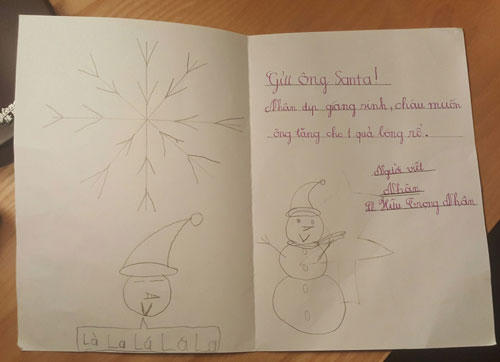 Là La Lá Lá La
Gửi ông Santa!
Nhân dịp giáng sinh, cháu muốn
ông tặng cho 1 quả bóng rổ.
Người viết
Nhân
Lê Hữu Trọng Nhân